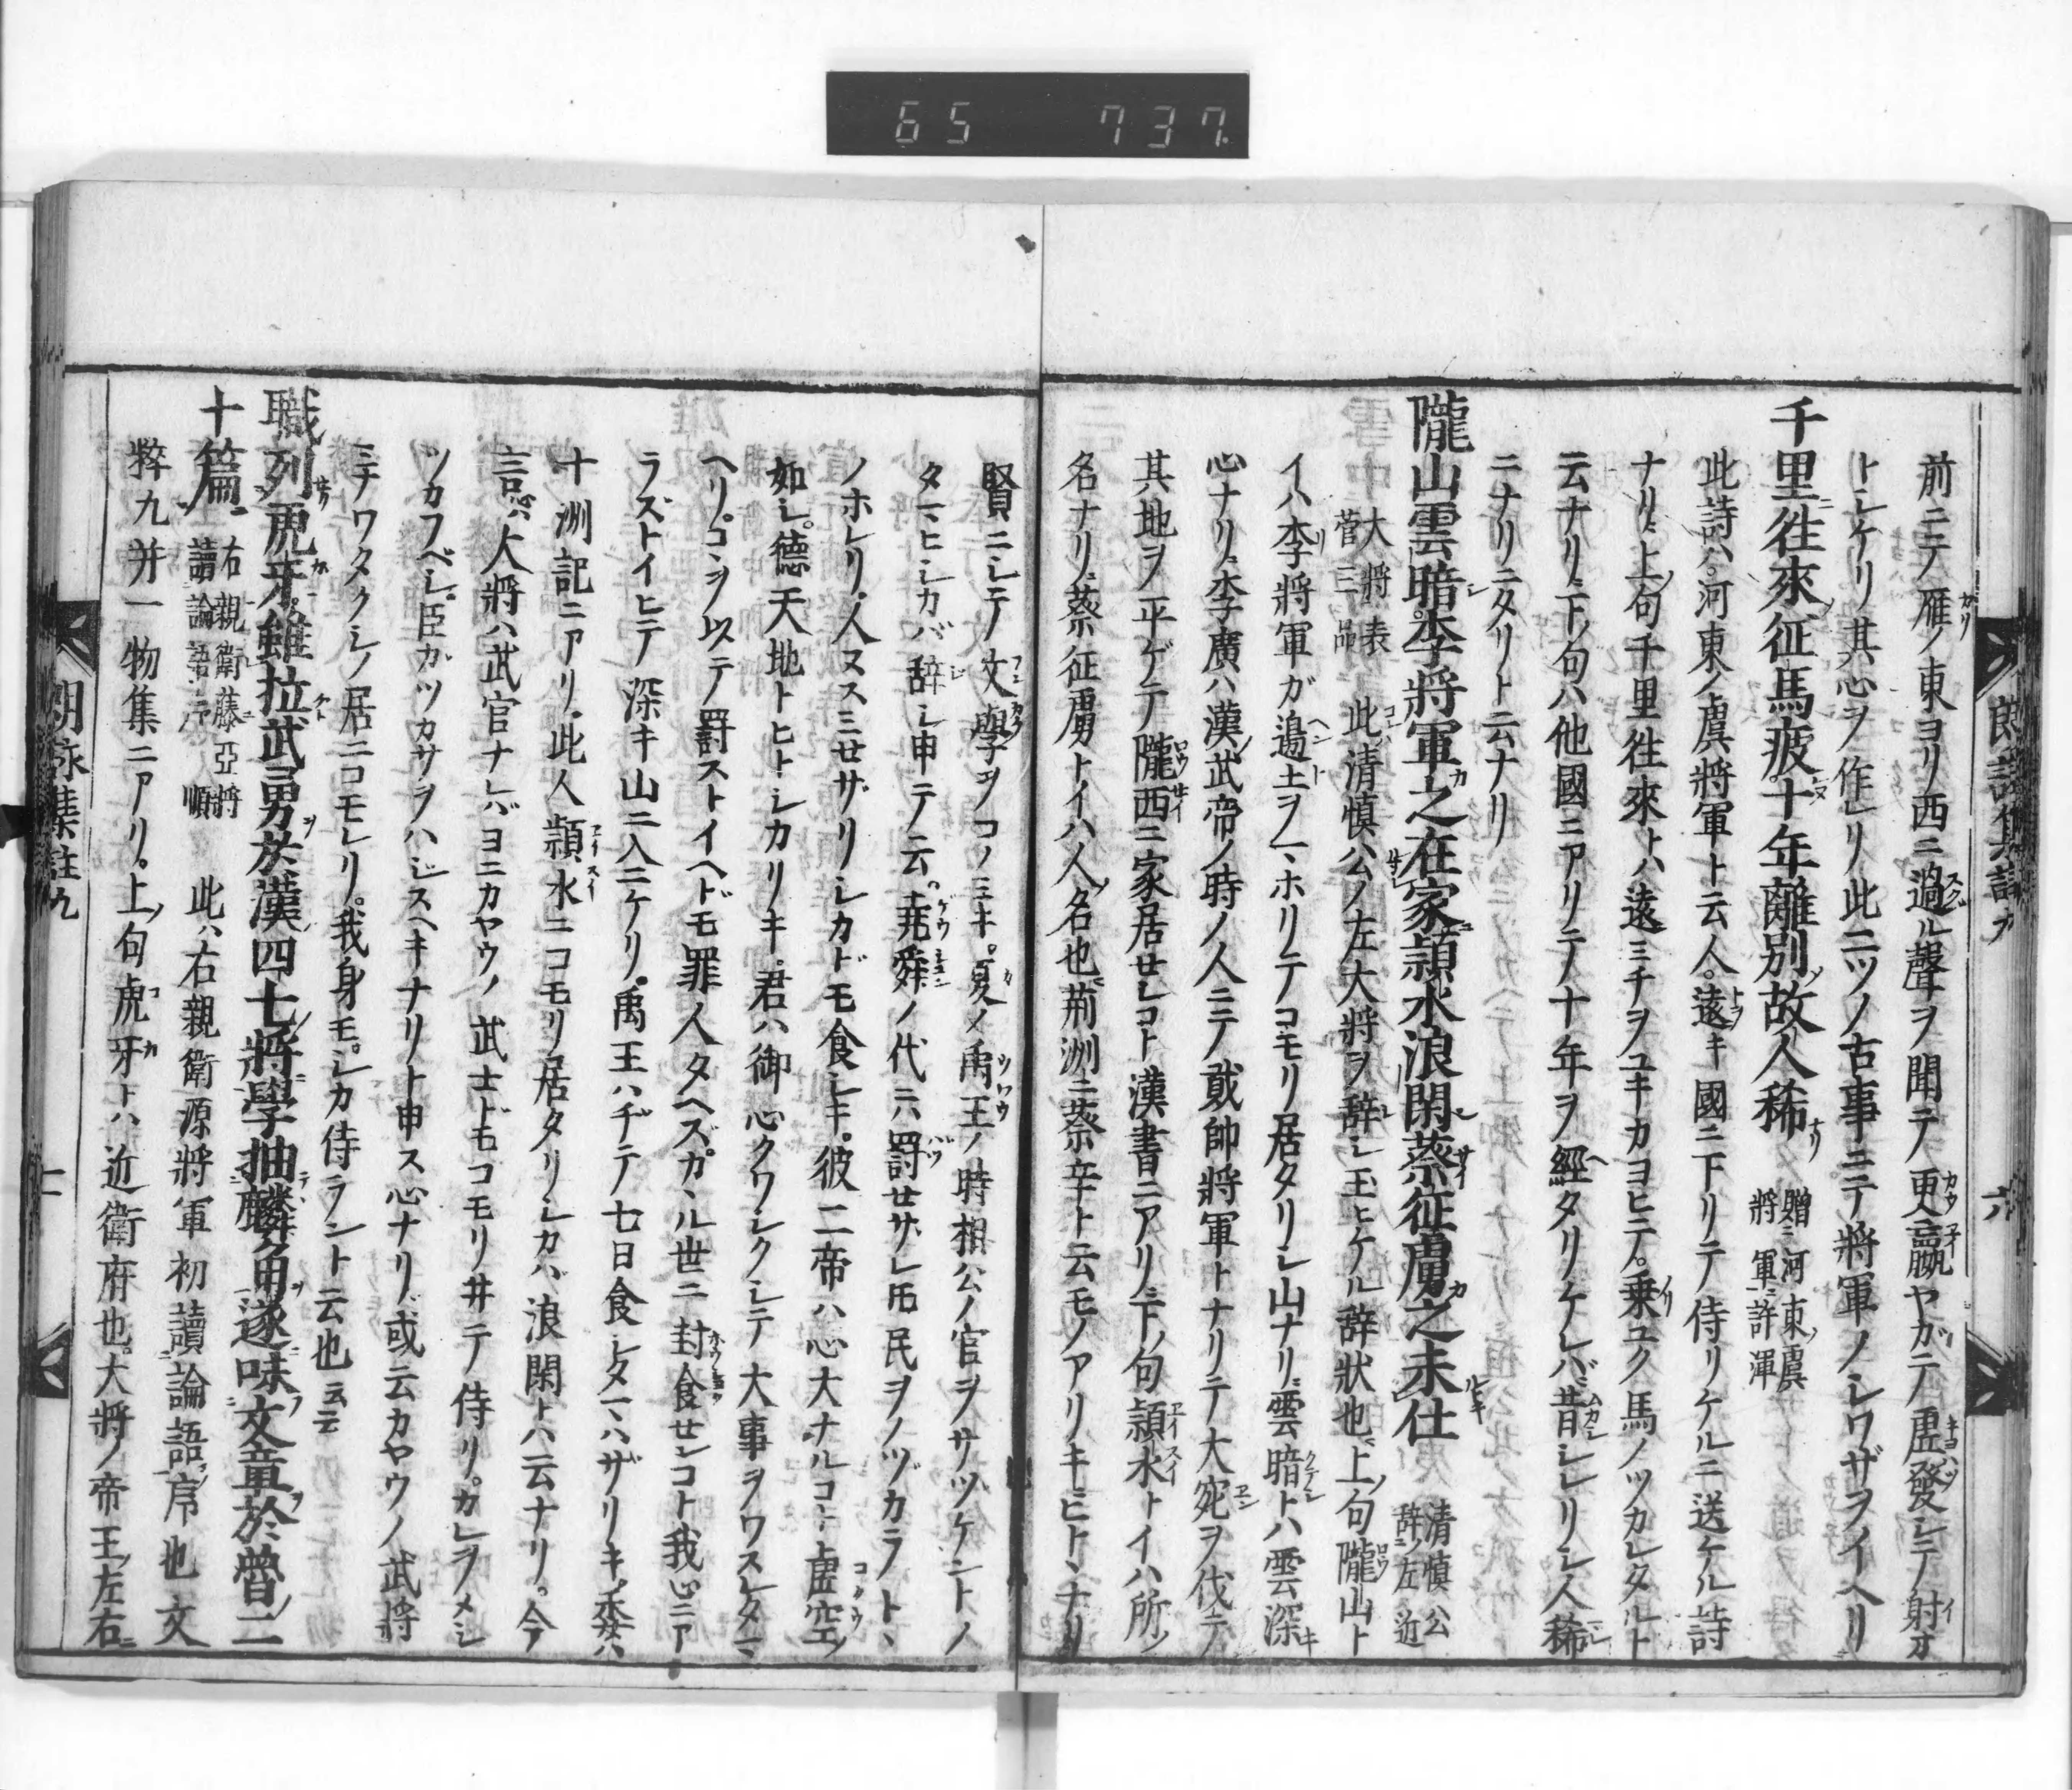 65 737.
前ニテ雁ノ東ヨリ西ニ過ル聲ヲ聞テ更嬴ヤガテ虚發シテ射オ
トシケリ其心ヲ作レリ此二ツノ古事ニテ將軍ノシワザヲイヘリ
千里往來征馬疲十年離別故人稀 贈河東虞將軍 許渾
此詩ハ河東ノ虞將軍ト云人遠キ國ニ下リテ侍リケルニ送ケル詩
ナリ上句千里往來トハ遠ミチヲユキカヨヒテ乗ユク馬ノツカレタルト
云ナリ下ノ句ハ他國ニアリテ十年ヲ經タリケレバ昔シレリシ人稀
ニナリニタリト云ナリ
隴山雲暗李將軍之在家頴水浪閑蔡征虜之未仕 清慎公辞左近
大將表 菅三品 此清慎公ノ左大將ヲ辞シ玉ヒケル辞状也上句隴山ト
イハ李將軍ガ邉土ヲヘホリテコモリ居タリシ山ナリ雲暗トハ雲深キ
心ナリ李廣ハ漢武帝ノ時ノ人ニテ貳帥將軍トナリテ大宛ヲ伐テ
其地ヲ平ゲテ隴西ニ家居セシコト漢書ニアリ下ノ句頴水トイハ所ノ
名ナリ蔡征虜トイハ人ノ名也荊洲ニ蔡辛ト云モノアリキヒトヽナリ
賢ニシテ文學ヲコノミキ夏ノ禹王ノ時相公ノ官ヲサツケントノ
タマヒシカバ辞シ申テ云堯舜ノ代ニハ罰セザレ𪜈民ヲノヅカラトヽ
ノホレリ人ススミセザリシカドモ食シキ彼二帝ハ心大ナルコト虚空ノ
如シ德天地トヒトシカリキ君ハ御心クワシクシテ大事ヲワスレタマ
ヘリコヽヲ以テ罰ストイヘドモ罪人タヘズカヽル世ニ封食センコト我心ニア
ラズトイヒテ深キ山ニ入ニケリ禹王ハヂテ七日食シタマハザリキ委ハ
十洲記ニアリ此人頴水ニコモリ居タリシカバ浪閑トハ云ナリ今
言心ハ大將ハ武官ナレバヨニカヤウノ武士ドモコモリ井テ侍リカレヲメシ
ツカフベシ臣ガツカサヲハシスヘキナリト申ス心ナリ或云カヤウノ武將
ミチワタクシノ居ニコモレリ我身モシカ侍ラント云也云云
職列虎牙雖拉武勇於漢四七將學抽麟角遂味文章於魯二
十篇 右親衛藤亞將讀論語 順 此ハ右親衛源將軍初讀論語序也文
粹九并一物集ニアリ上ノ句虎牙トハ近衛府也大將ノ帝王ノ左右ニ
朗詠集註九